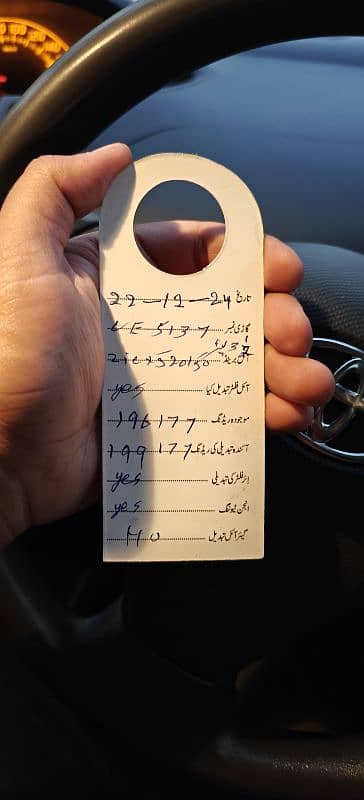 تاریخ 22-12-24
گاڑی نمبر LE 5137
برینڈ
آئل فلٹر تبدیل کیا yes
موجودہ ریڈنگ 196177
آئندہ تبدیلی کی ریڈنگ 199177
ائر فلٹر کی تبدیلی yes
انجن ٹیوننگ yes
گیئر آئل تبدیل No